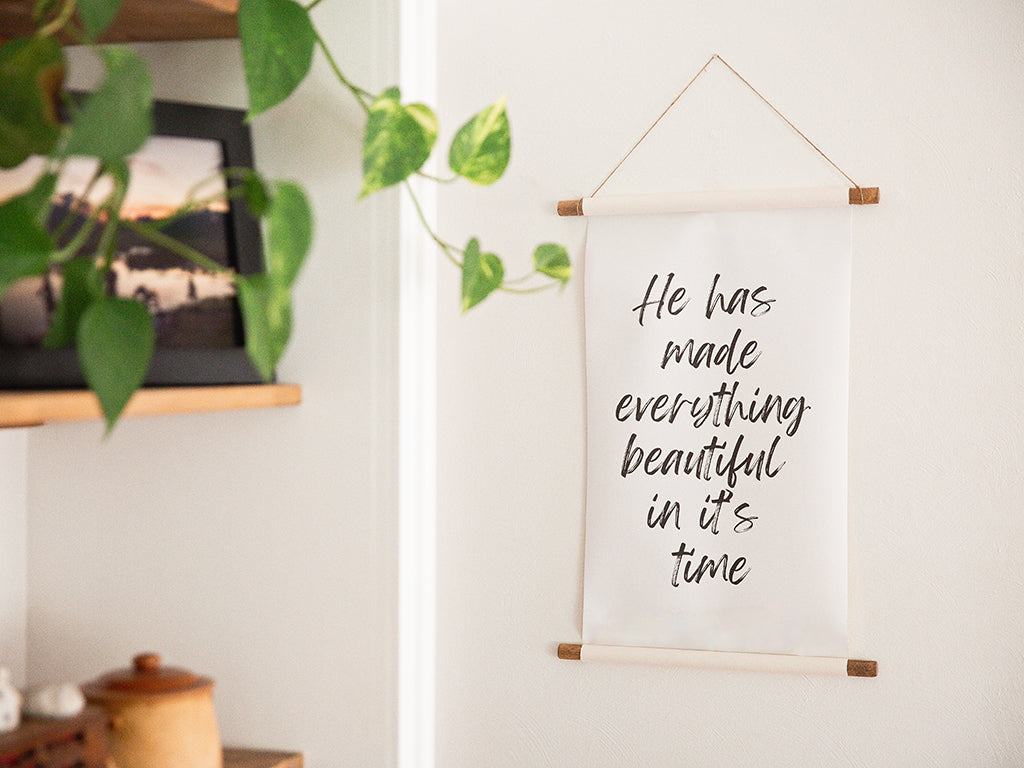 He has
made
everything
beautiful
in it's
time